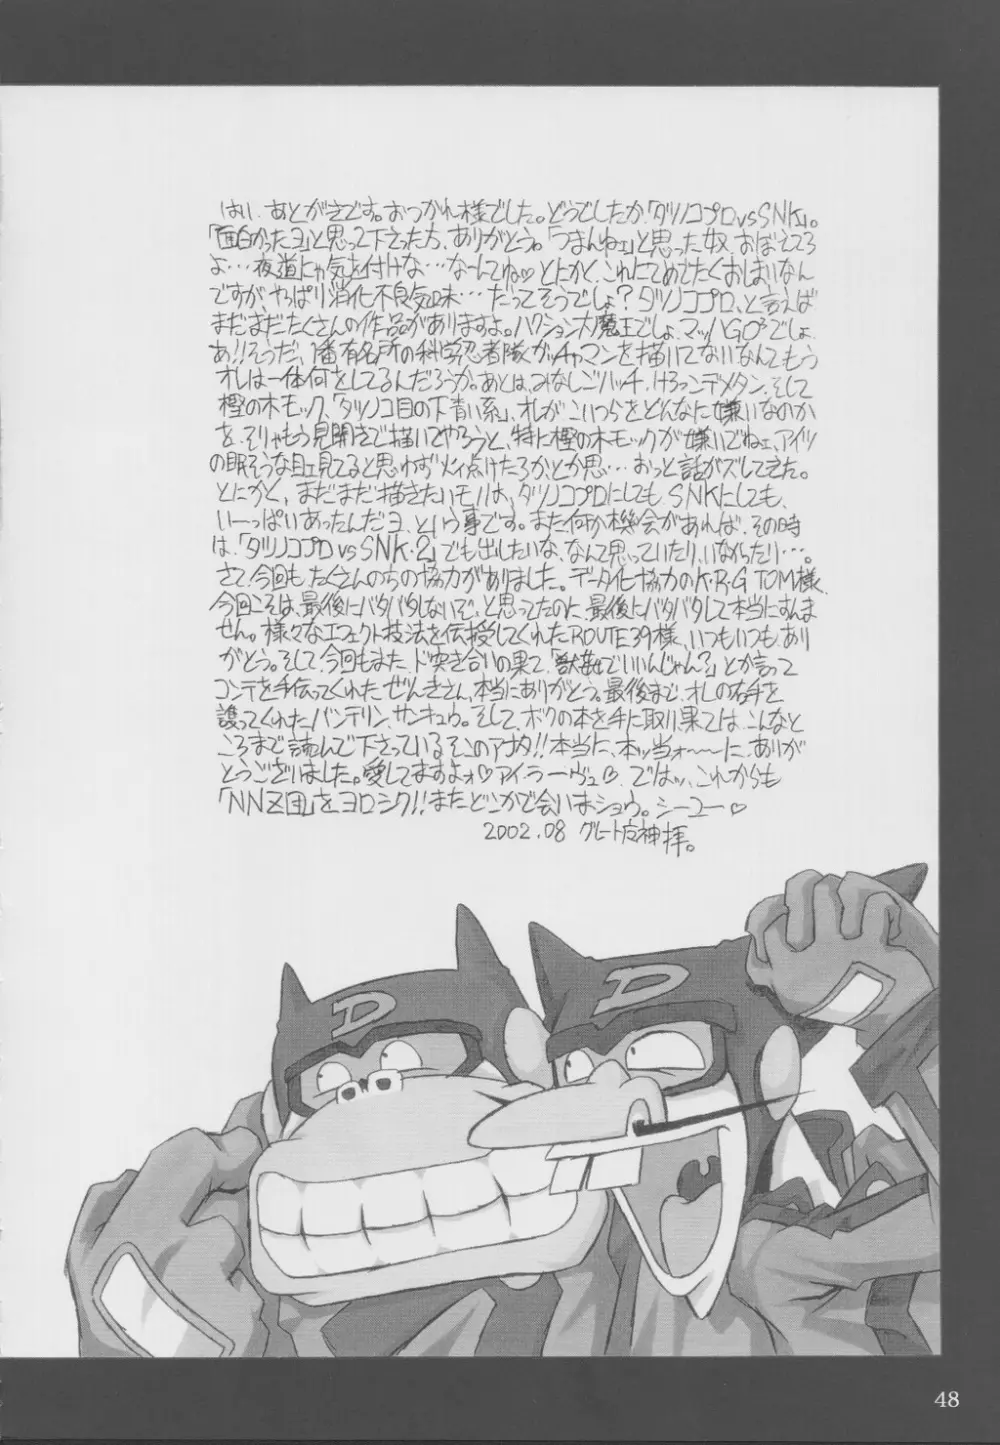 はい、あとがきです。おつかれ様でした。どうでしたか、「タツノコプロvsSNK」。
「面白かったヨ」と思って下さった方、ありがとう。「つまんねェ」と思った奴、おぼえてろ
よ…夜道にゃ気を付けな…なーんてね♡とにかく、これにてめでたくおしまいなん
ですが、やっぱり消化不良気味…だってそうでしょ?タツノコプロ、と言えば
まだまだたくさんの作品がありますよ。ハクション大魔王でしょ、マッハGO³でしょ、
あ!!そうだ、1番有名所の科学忍者隊ガッチャマンを描いてないなんてもう
オレは一体何をしてるんだろうか。あとは、みなしごハッチ、けろっこデメタン、そして
樫の木モック、「タツノコ目の下青い系」、オレがこいつらをどんなに嫌いなのか
を、そりゃもう見開きで描いてやろうと、特に樫の木モックが嫌いでねェ、アイツ
の眠そうな目ェ見てると思わず火ィ点けたろかとか思…おっと話がズレてきた。
とにかく、まだまだ描きたいモノは、タツノコプロにしてもSNKにしても、
いーっぱいあったんだヨ、という事です。また何か機会があれば、その時
は、「タツノコプロvsSNK・2」でも出したいな、なんて思っていたり、いなかったり…。
さて、今回も、たくさんのちの協力がありました。データ化協力のK・R・G TOM様、
今回こそは、最後にバタバタしないぞ、と思ってたのに、最後にバタバタして本当にすんま
せん。様々なエフェクト技法を伝授してくれたROUTE39様、いつもいつも、あり
がとう。そして、今回もまた、ド突き合いの果て、「獣姦でいいんじゃん?」とか言って
コンテを手伝ってくれた、ぜんきさん、本当にありがとう。最後まで、オレの右手を
護ってくれたバンテリン、サンキュウ。そして、ボクの本を手に取り、果ては、こんなと
ころまで読んで下さっているそこのアナタ!!本当に、本ッ当ォ〜〜〜に、ありが
とうございました。愛してますよォ♡アイ・ラーヴュ♡ではッ、これからも
「NNZ団」をヨロシク!!またどこかで会いまショウ。シーユー♡
2002.08 グレート 神 拝。
D
D
48